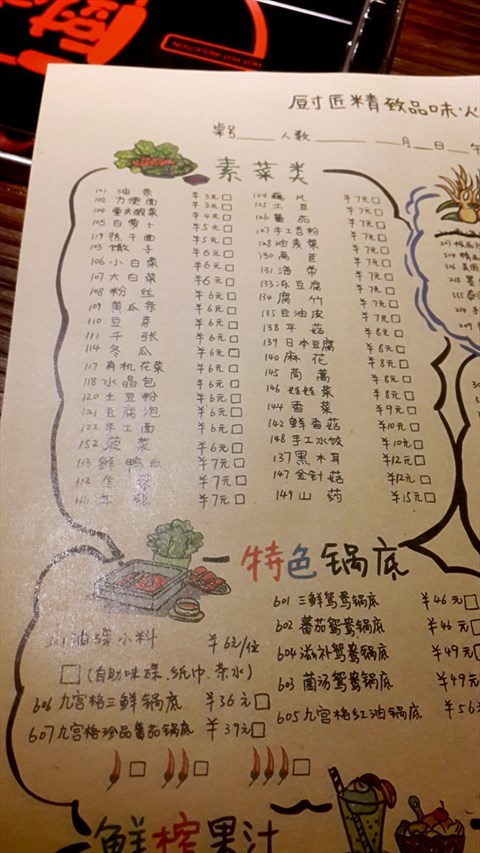 HOT POT SELECTION
厨匠精致品味火
桌号 人数 月 日 午
素菜类
101 油条 ¥3元
102 方便面 ¥3元
104 重庆酸菜 ¥4元
105 白萝卜 ¥5元
119 热干面 ¥5元
103 馓子 ¥6元
106 小白菜 ¥6元
107 大白菜 ¥6元
108 粉丝 ¥6元
109 黄瓜条 ¥6元
110 豆芽 ¥6元
111 千张 ¥6元
114 冬瓜 ¥6元
117 有机花菜 ¥6元
118 水晶包 ¥6元
120 土豆粉 ¥6元
121 豆腐泡 ¥6元
122 手工面 ¥6元
152 菠菜 ¥6元
113 鲜鸭血 ¥7元
¥7元
¥7元
¥7元
125 土豆 ¥7元
126 番茄 ¥7元
127 手工苕粉 ¥7元
128 油麦菜 ¥7元
130 莴苣 ¥7元
131 海带 ¥7元
133 冻豆腐 ¥7元
134 腐竹 ¥7元
135 豆油皮 ¥7元
138 平菇 ¥8元
139 日本豆腐 ¥8元
140 麻花 ¥8元
145 茼蒿 ¥8元
146 娃娃菜 ¥8元
144 香菜 ¥9元
142 鲜香菇 ¥10元
148 手工水饺 ¥10元
137 黑木耳 ¥12元
147 金针菇 ¥12元
149 山药 ¥15元
特色锅底
油碟小料 ¥6元/位
(自助味碟、纸巾、茶水)
606 九宫格三鲜锅底 ¥36元
607 九宫格珍品番茄锅底 ¥39元
601 三鲜鸳鸯锅底 ¥46元
602 番茄鸳鸯锅底 ¥46元
604 滋补鸳鸯锅底 ¥49元
603 菌汤鸳鸯锅底 ¥49元
605 九宫格红油锅底 ¥56
鲜榨果汁